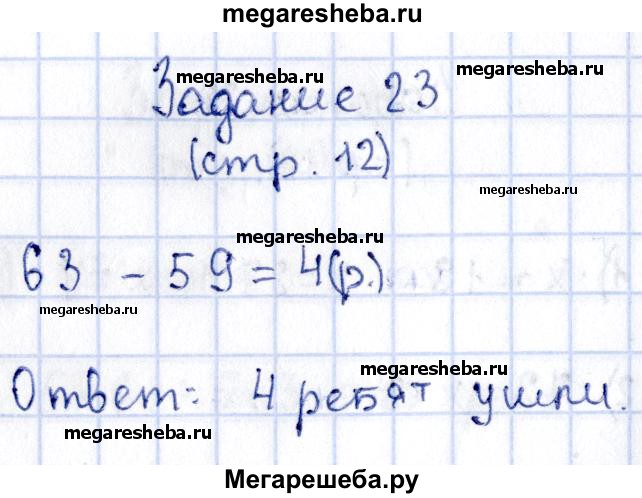 megaresheba.ru
megaresheba.ru
megaresheba.ru
Задание 23
(стр. 12)
megaresheba.ru
megaresheba.ru
63 - 59 = 4(р.)
megaresheba.ru
megaresheba.ru
Ответ: 4 ребят ушли.
megaresheba.ru
Мегарешеба.ру